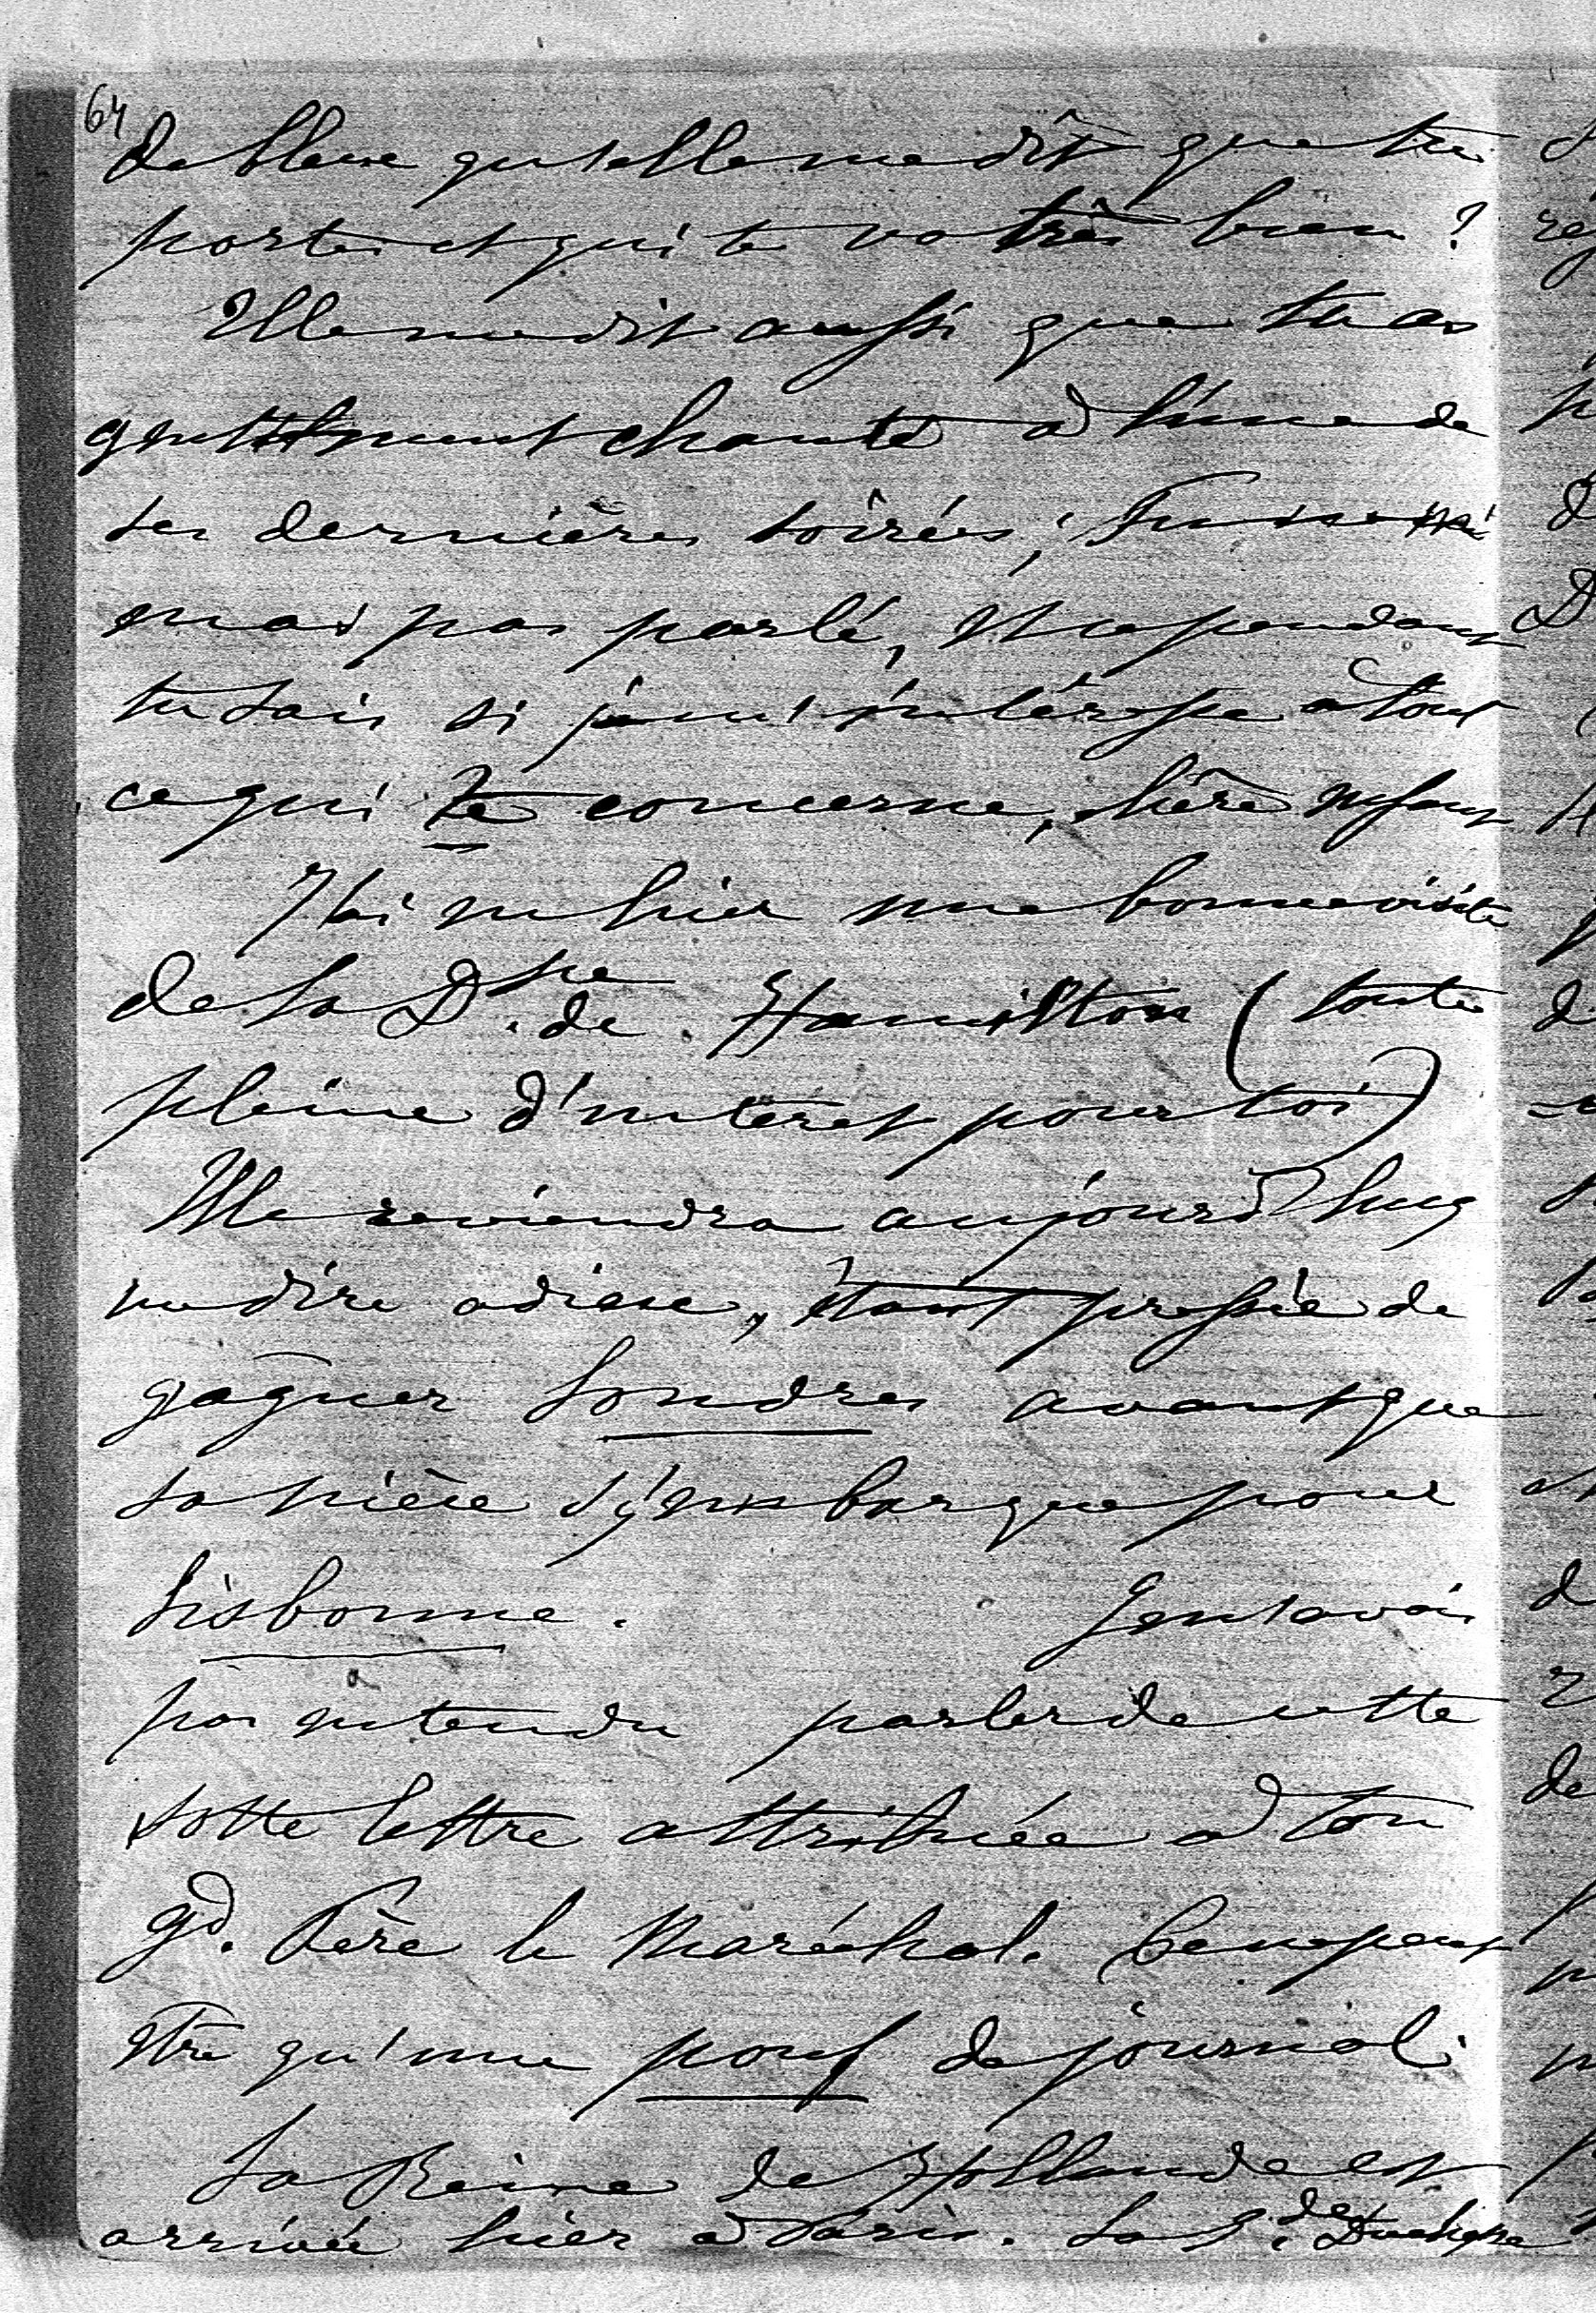 64
de bleue qu'elle me dit que tu
portes et qui te va très bien ?
Elle me dit aussi que tu as
gentillement chanté à l'une de
ses dernières soirées ; Tu ne
m'as pas parlé, et cependant
tu sais si je m'intéresse à tout
ce qui te concerne, chère enfant
J'ai eu hier une bonne visite
de la Dsse de Hamilton (toute
pleine d'intéret pour toi)
Elle reviendra aujourd'huy
me dire adieu, étant pressée de
gagner Londres avant que
sa nièce s'y embarque pour
Lisbonne. Je n'avais
pas entendu parler de cette
sotte lettre attribuée à ton
gd. Père le Maréchal. Ce ne peut
être qu'une pouf de journal.
La Reine de Hollande est
arrivée hier à Paris. La gde Duchesse